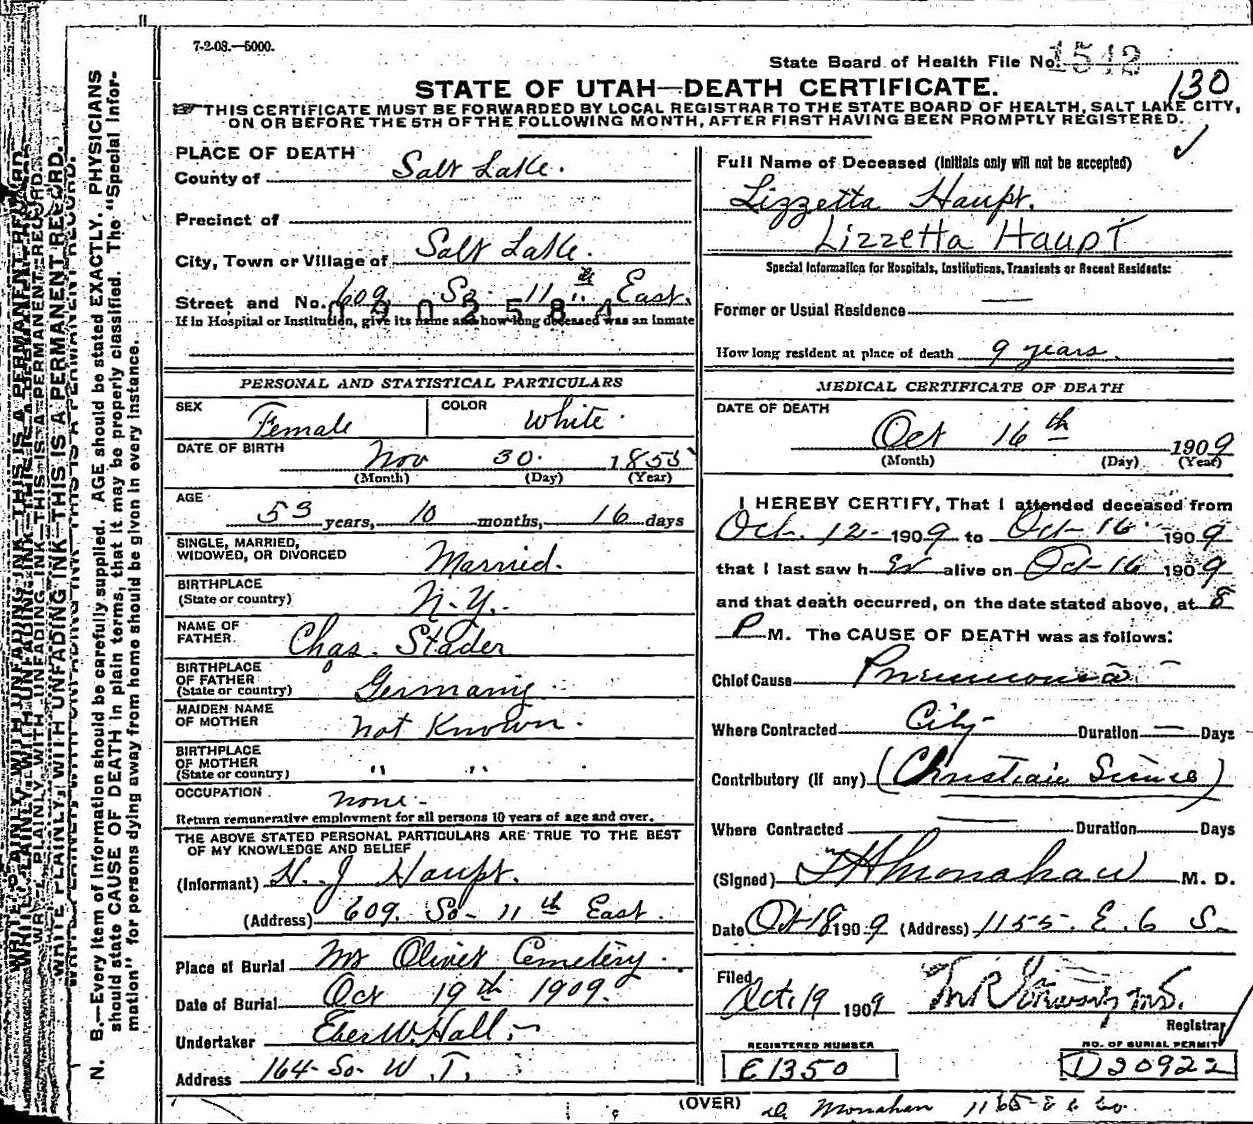 7-2-08.—5000.
State Board of Health File No. 1542
130
STATE OF UTAH—DEATH CERTIFICATE.
THIS CERTIFICATE MUST BE FORWARDED BY LOCAL REGISTRAR TO THE STATE BOARD OF HEALTH, SALT LAKE CITY,
ON OR BEFORE THE 5TH OF THE FOLLOWING MONTH, AFTER FIRST HAVING BEEN PROMPTLY REGISTERED.
PLACE OF DEATH
County of Salt Lake.
Precinct of
City, Town or Village of Salt Lake.
Street and No. 609 So 11th East.
0902584
If in Hospital or Institution, give its name and how long deceased was an inmate
PERSONAL AND STATISTICAL PARTICULARS
SEX Female COLOR White.
DATE OF BIRTH Nov 30. 1855
(Month) (Day) (Year)
AGE 53 years, 10 months, 16 days
SINGLE, MARRIED,
WIDOWED, OR DIVORCED Married.
BIRTHPLACE
(State or country) N.Y.
NAME OF
FATHER. Chas. Stader
BIRTHPLACE
OF FATHER
(State or country) Germany.
MAIDEN NAME
OF MOTHER not Known.
BIRTHPLACE
OF MOTHER
(State or country) " "
OCCUPATION none-
Return remunerative employment for all persons 10 years of age and over.
THE ABOVE STATED PERSONAL PARTICULARS ARE TRUE TO THE BEST
OF MY KNOWLEDGE AND BELIEF
(Informant) H. J Haupt.
(Address) 609. So- 11th East.
Place of Burial Mt Olivet Cemetery.
Date of Burial Oct 19th 1909.
Undertaker Eber W. Hall
Address 164- So. W. T.
Full Name of Deceased (Initials only will not be accepted)
Lizzetta Haupt.
Lizzetta Haupt
Special Information for Hospitals, Institutions, Transients or Recent Residents:
Former or Usual Residence —
How long resident at place of death 9 years.
MEDICAL CERTIFICATE OF DEATH
DATE OF DEATH
Oct 16th 1909
(Month) (Day) (Year)
I HEREBY CERTIFY, That I attended deceased from
Oct. 12- 1909 to Oct-16 1909
that I last saw h er alive on Oct-16 1909
and that death occurred, on the date stated above, at 8
P M. The CAUSE OF DEATH was as follows:
Chief Cause Pneumonia
Where Contracted City- Duration — Days
Contributory (if any) (Christian Science)
Where Contracted — Duration Days
(Signed) F H Monahan M. D.
Date Oct 18 1909 (Address) 1155. E. 6 S.
Filed
Oct. 19 1909
Registrar
REGISTERED NUMBER
E1350
NO. OF BURIAL PERMIT
D20922
(OVER)
Dr Monahan 1165- E 6 So.
N. B.—Every item of Information should be carefully supplied. AGE should be stated EXACTLY. PHYSICIANS
should state CAUSE OF DEATH in plain terms, that it may be properly classified. The "Special Infor-
mation" for persons dying away from home should be given in every instance.
WRITE PLAINLY, WITH UNFADING INK—THIS IS A PERMANENT RECORD.